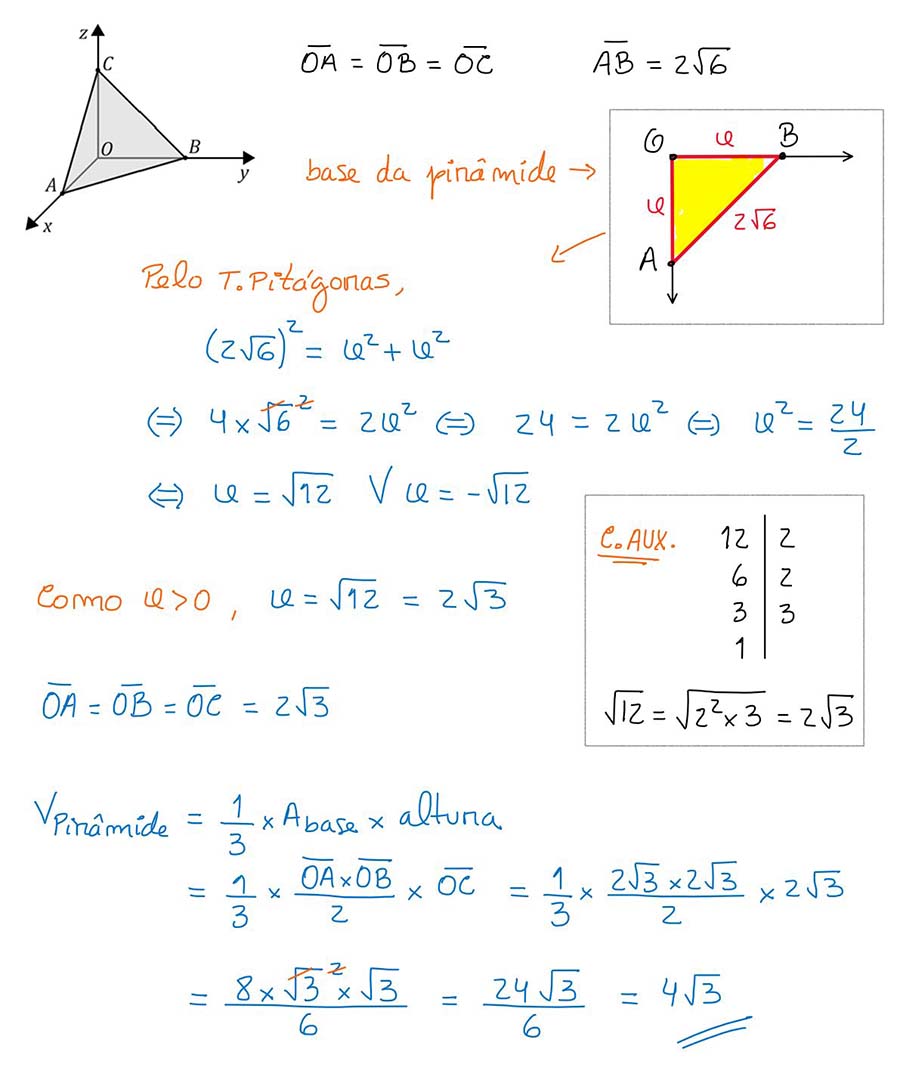 z
C
O
B
y
A
x
O̅A̅ = O̅B̅ = O̅C̅
A̅B̅ = 2√6
base da pirâmide →
O u B
u
2√6
A
Pelo T. Pitágoras,
(2√6)² = u² + u²
⇔ 4 × √6² = 2u² ⇔ 24 = 2u² ⇔ u² = 24/2
⇔ u = √12 ∨ u = -√12
Como u > 0, u = √12 = 2√3
C. AUX.
12 | 2
6 | 2
3 | 3
1 |
√12 = √(2² × 3) = 2√3
O̅A̅ = O̅B̅ = O̅C̅ = 2√3
V Pirâmide = 1/3 × A base × altura
= 1/3 × (O̅A̅ × O̅B̅)/2 × O̅C̅ = 1/3 × (2√3 × 2√3)/2 × 2√3
= (8 × √3² × √3)/6 = 24√3/6 = 4√3